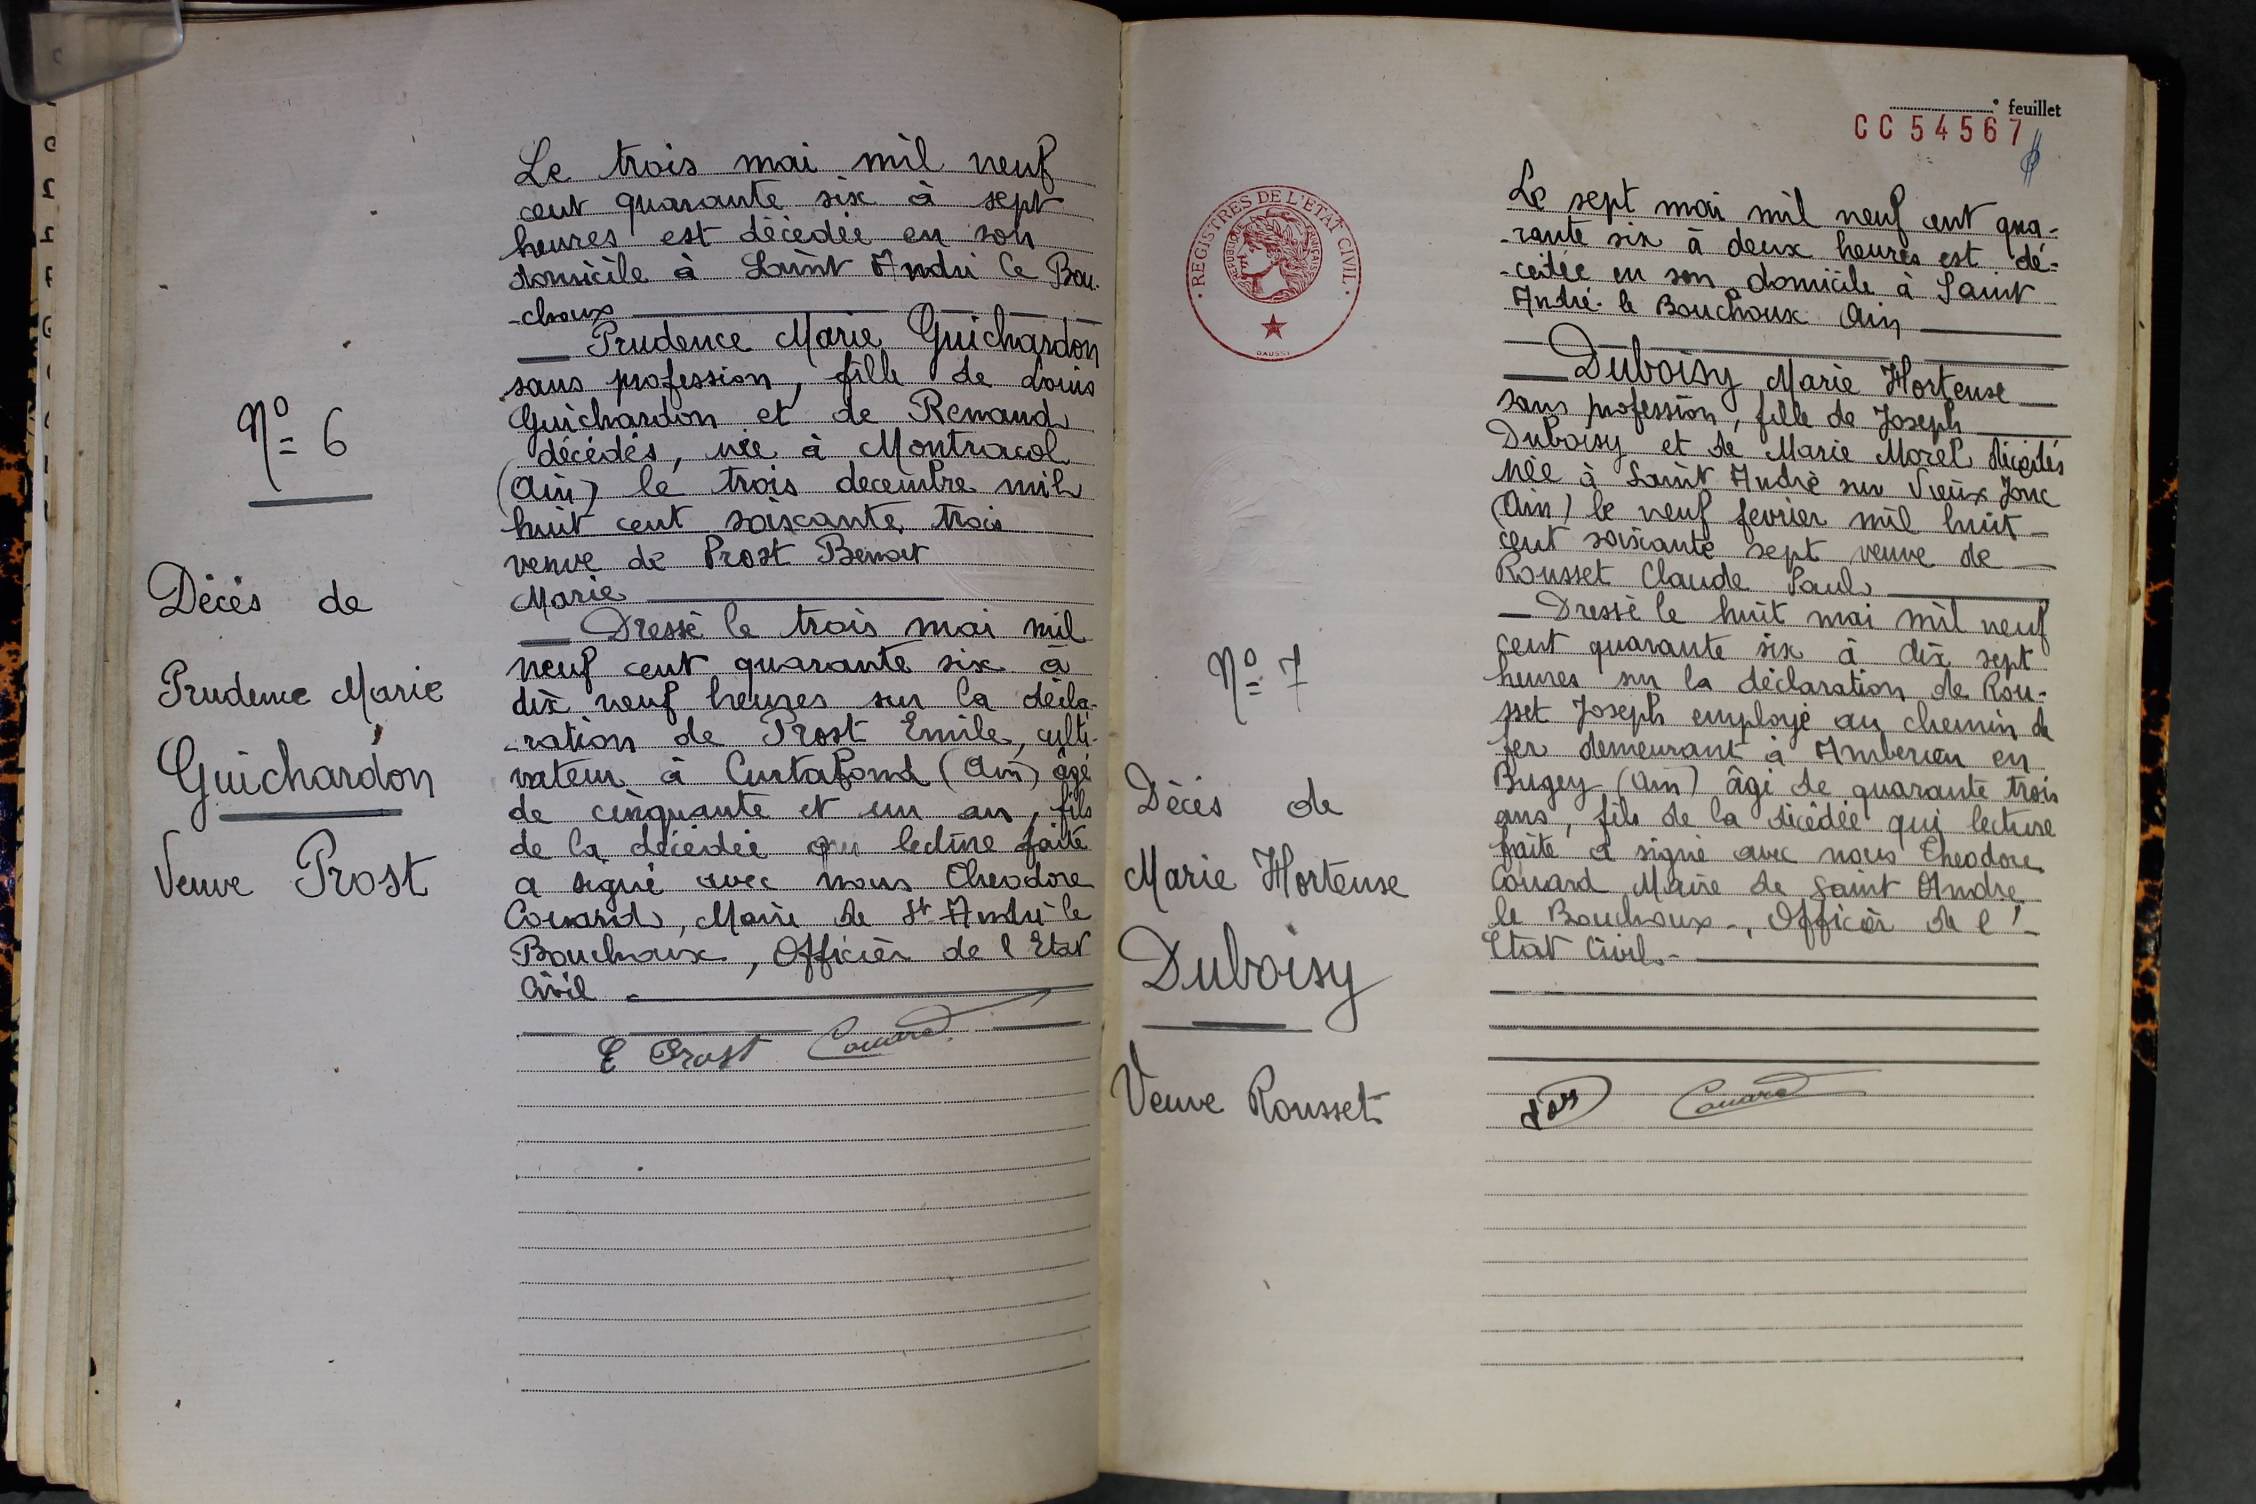 Le trois mai mil neuf
cent quarante six à sept
heures est décédée en son
domicile à Saint André le Bou-
-choux
Prudence Marie Guichardon
sans profession, fille de Louis
Guichardon et de Renaud
décédés, née à Montracol
(Ain) le trois decembre mil
huit cent soixante trois
veuve de Prost Benoit
Marie
Dressé le trois mai mil
neuf cent quarante six à
dix neuf heures sur la décla-
-ration de Prost Emile, culti-
vateur à Curtafond (Ain) âgé
de cinquante et un an, fils
de la décédée qui lecture faite
a signé avec nous Theodore
Couard, Maire de St André le
Bouchoux, Officier de l'Etat
Civil
E Prost Couard
N° 6
Décès de
Prudence Marie
Guichardon
Veuve Prost
° feuillet
CC 54567
REGISTRES DE L'ETAT CIVIL
REPUBLIQUE FRANÇAISE
Le sept mai mil neuf cent qua-
-rante six à deux heures est dé-
-cédée en son domicile à Saint
André-le Bouchoux Ain
Duboisy Marie Hortense
sans profession, fille de Joseph
Duboisy et de Marie Morel décédés
née à Saint André sur Vieux Jonc
(Ain) le neuf fevrier mil huit
cent soixante sept veuve de
Rousset Claude Paul
Dressé le huit mai mil neuf
cent quarante six à dix sept
heures sur la déclaration de Rou-
sset Joseph employé au chemin de
fer demeurant à Amberieu en
Bugey (Ain) âgé de quarante trois
ans, fils de la décédée qui lecture
faite a signé avec nous Theodore
Couard Maire de Saint Andre
le Bouchoux-, Officier de l'
Etat Civil-
Couard
N° 7
Décès de
Marie Hortense
Duboisy
Veuve Rousset